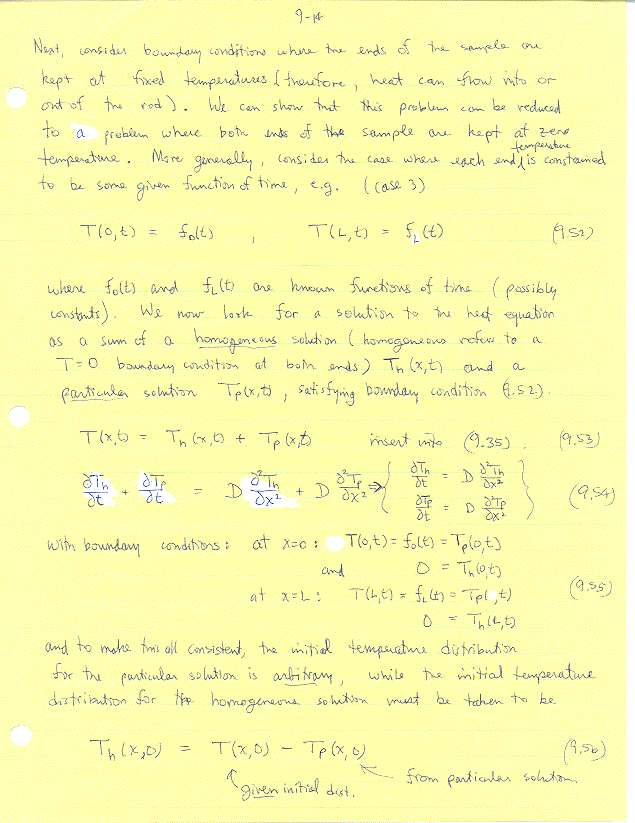 9-14
Next, consider boundary conditions where the ends of the sample are
kept at fixed temperatures (therefore, heat can flow into or
out of the rod). We can show that this problem can be reduced
to a problem where both ends of the sample are kept at zero
temperature. More generally, consider the case where each end temperature is constrained
to be some given function of time, e.g. (case 3)
T(0,t) = f₀(t) , T(L,t) = f_L(t) (9.52)
where f₀(t) and f_L(t) are known functions of time (possibly
constants). We now look for a solution to the heat equation
as a sum of a homogeneous solution (homogeneous refers to a
T=0 boundary condition at both ends) T_h(x,t) and a
particular solution T_p(x,t), satisfying boundary condition (9.52).
T(x,t) = T_h(x,t) + T_p(x,t) insert into (9.35). (9.53)
∂T_h/∂t + ∂T_p/∂t = D ∂²T_h/∂x² + D ∂²T_p/∂x² ⇒ { ∂T_h/∂t = D ∂²T_h/∂x²
∂T_p/∂t = D ∂²T_p/∂x² } (9.54)
with boundary conditions: at x=0: T(0,t) = f₀(t) = T_p(0,t)
and 0 = T_h(0,t)
at x=L: T(L,t) = f_L(t) = T_p( ,t) (9.55)
0 = T_h(L,t)
and to make this all consistent, the initial temperature distribution
for the particular solution is arbitrary, while the initial temperature
distribution for the homogeneous solution must be taken to be
T_h(x,0) = T(x,0) - T_p(x,0) (9.56)
given initial dist. from particular solution.